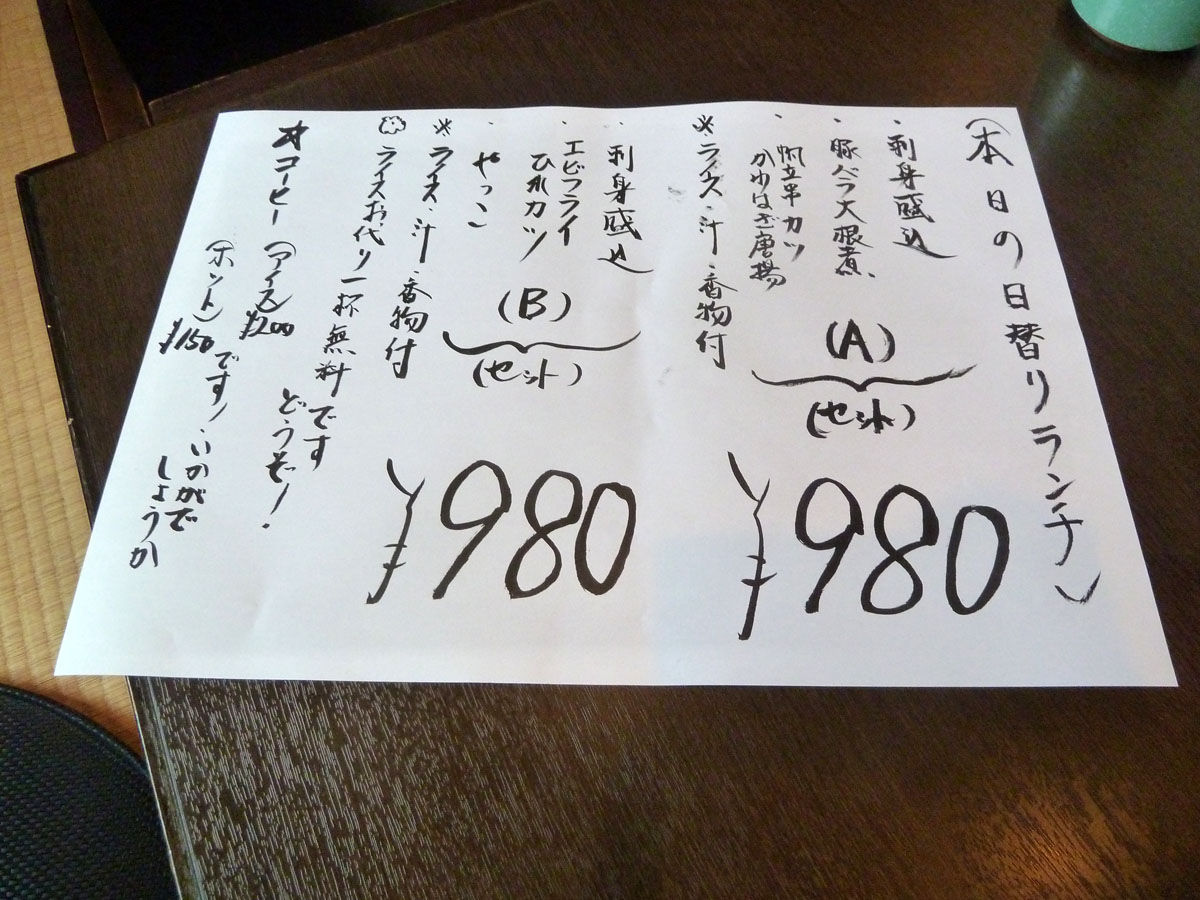 (本日の日替りランチ)
・刺身盛込
・豚バラ大根煮
・帆立串カツ
かわはぎ唐揚
※ライス・汁・香物付
(A)
(セット)
¥980
・刺身盛込
・エビフライ
ひれカツ
・やっこ
※ライス・汁・香物付
(B)
(セット)
¥980
ライスお代り一杯無料です
どうぞ!
★コーヒー
(アイス) ¥200
(ホット) ¥150
です!いかがで
しょうか